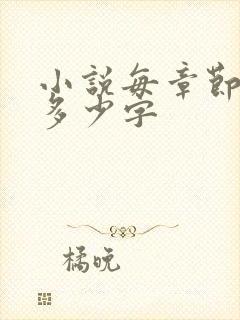 小説每章節
多少字
橘晚